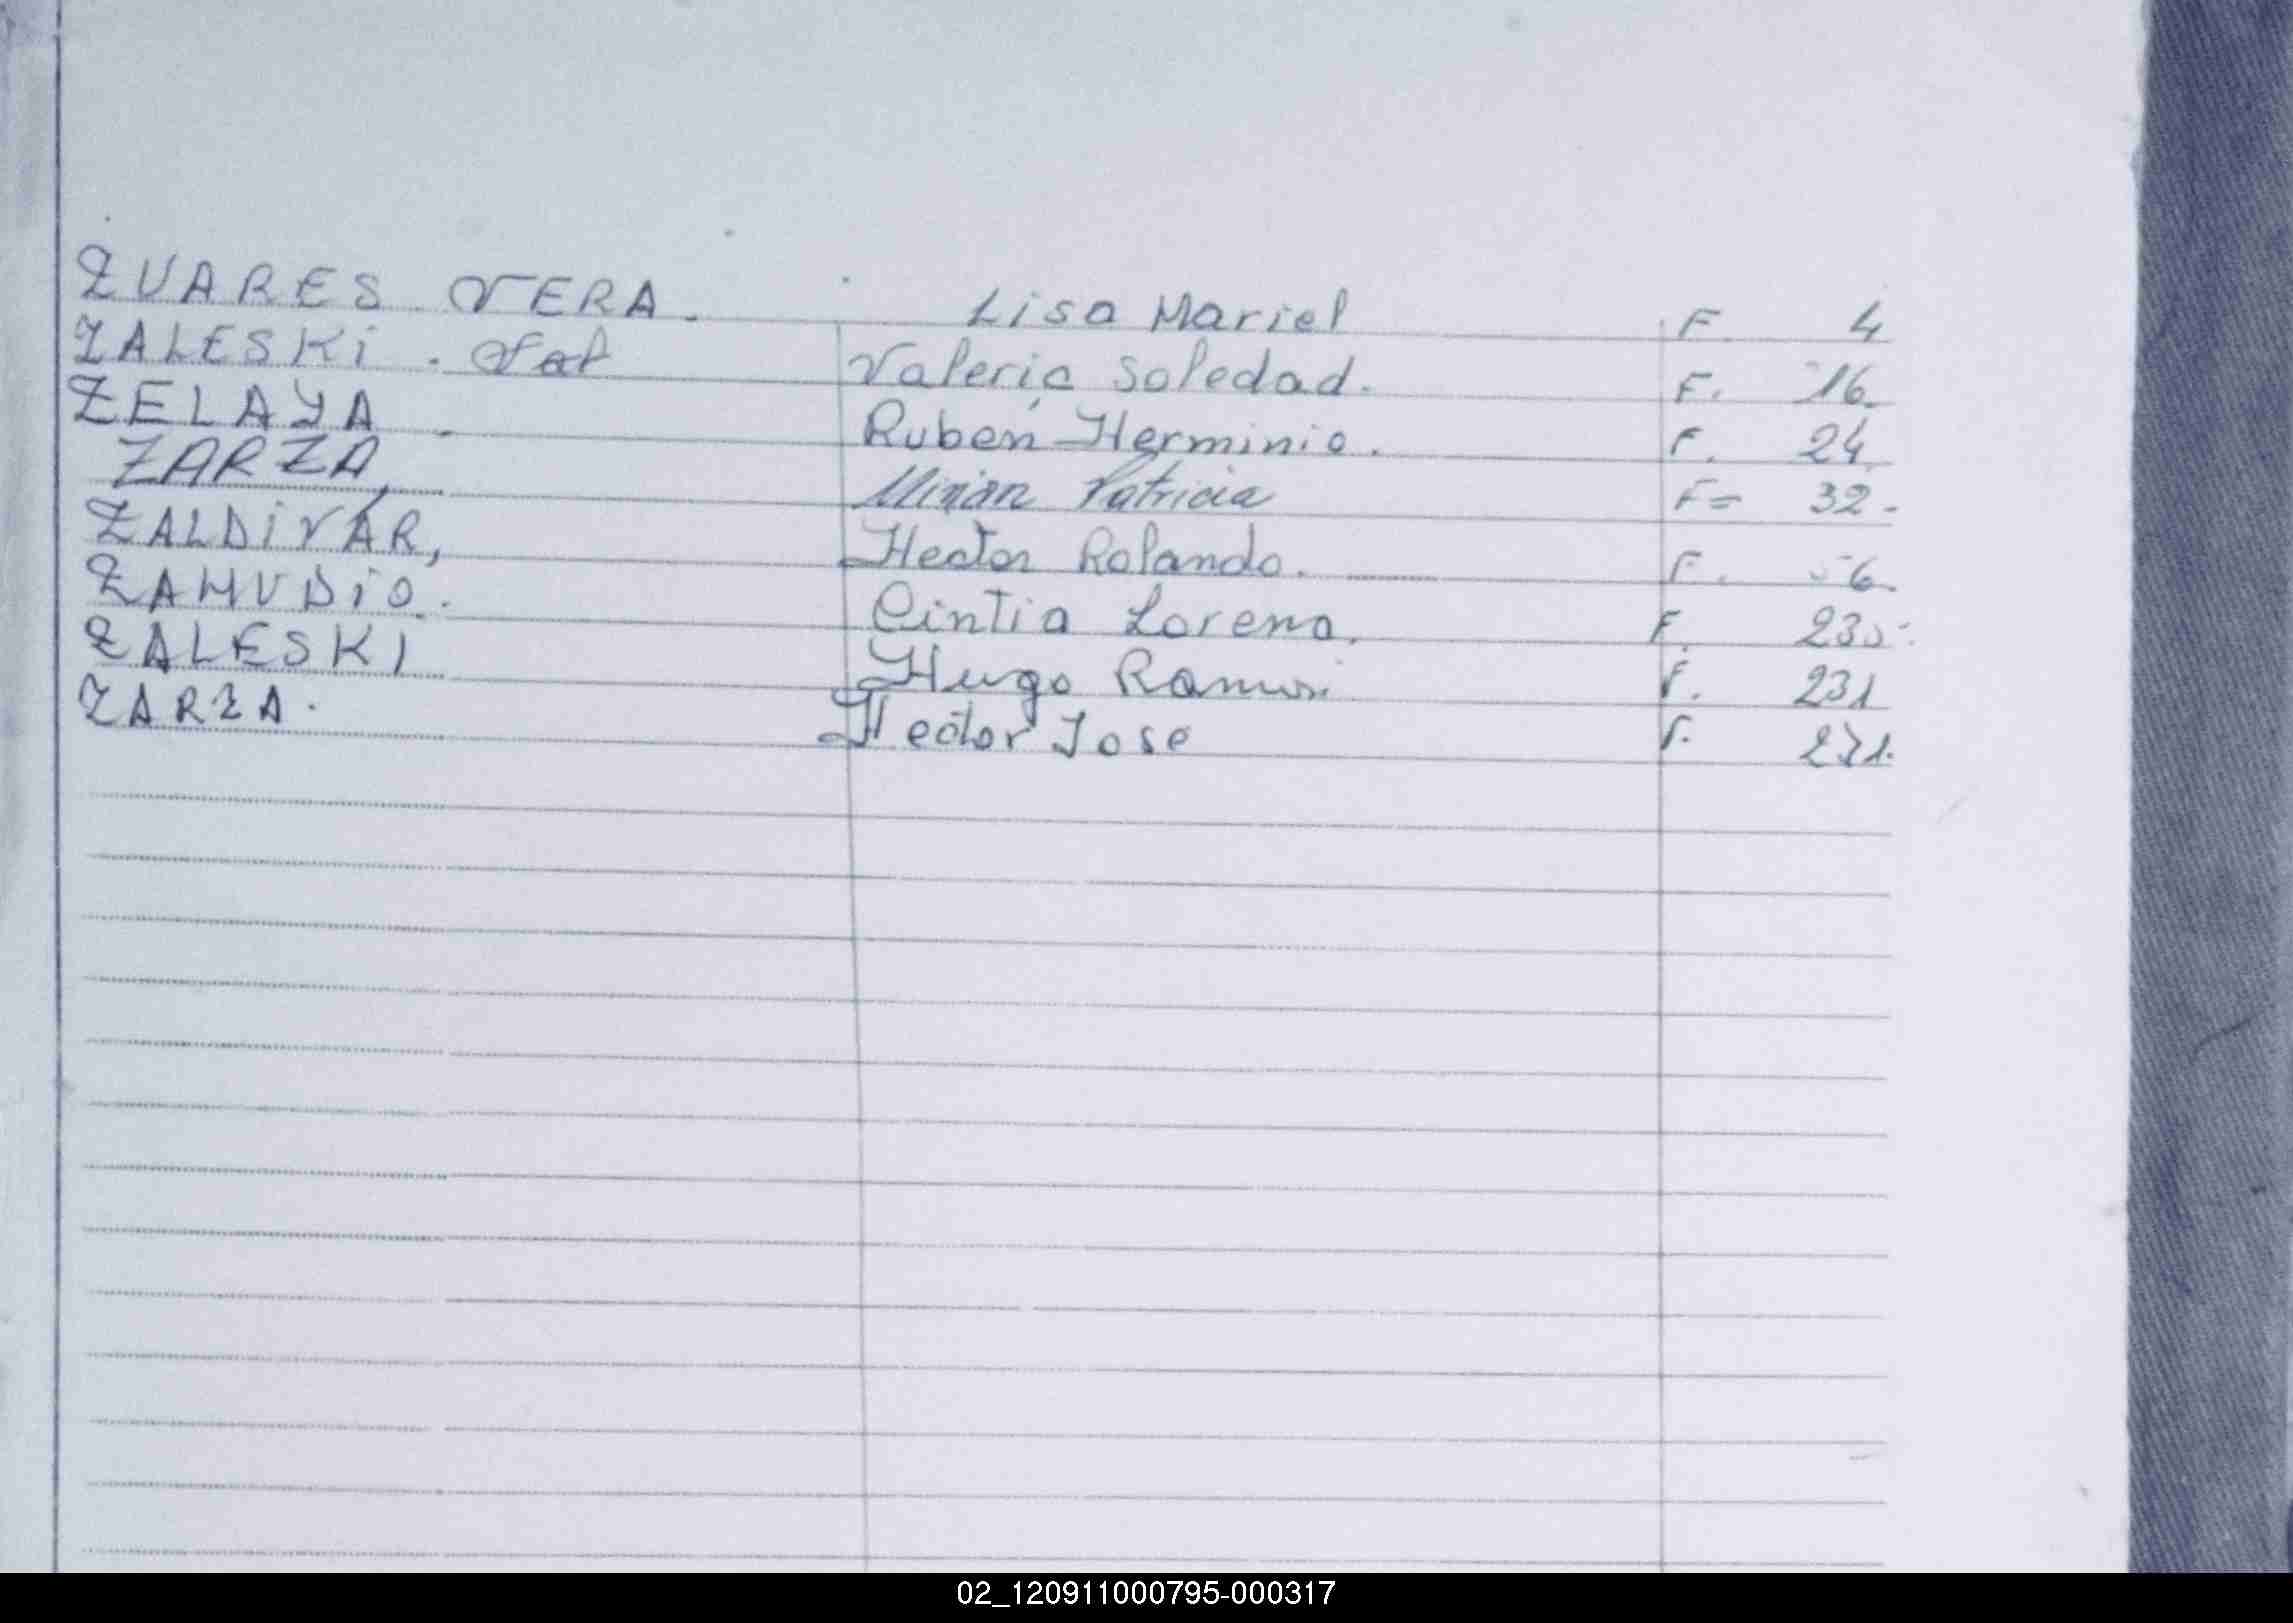 ZUARES VERA. Lisa Mariel F. 4
ZALESKI. Val Valeria Soledad. F. 16.
ZELAYA Rubén Herminio. F. 24
ZARZA Mirian Patricia F= 32-
ZALDIVAR, Hector Rolando. F.
ZAMUDIO. Cintia Lorena. F.
ZALESKI Hugo F. 231
ZARZA. Hector Jose F.
02_120911000795-000317